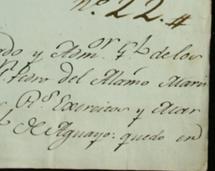 No. 22.
do y Adm.or G.l de los
Pedro del Alamo Marin
Rs. Exercitos y Mar
de Aguayo: quedo en